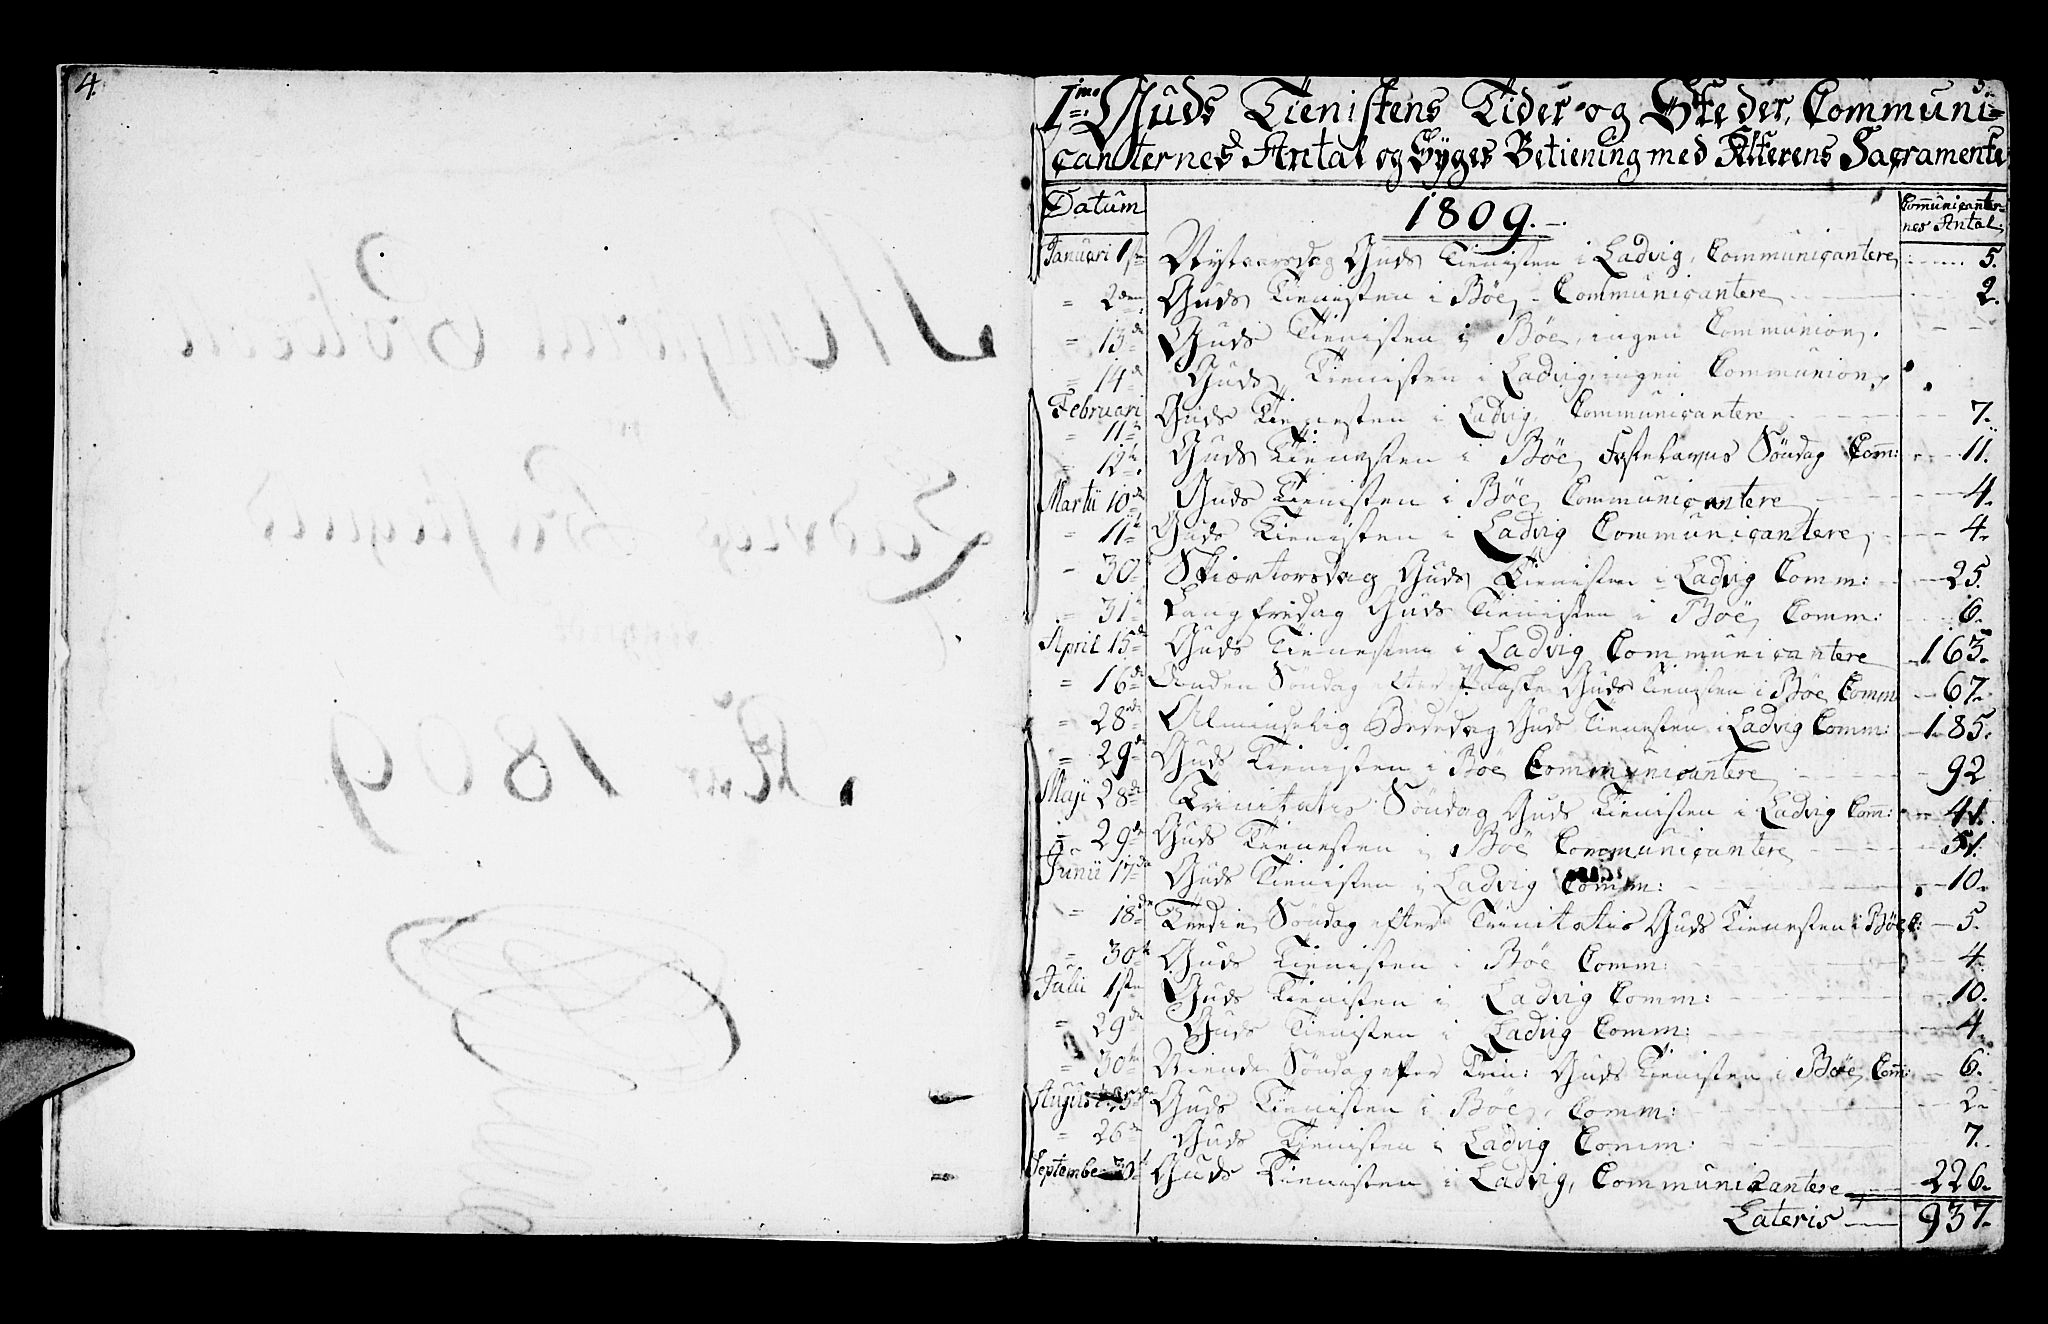 4.
5.
1mo Guds Tienistens Tider og Steder, Communi=
canternes Antal og Syges Betiening med Alterens Sacramente
Datum 1809. Communicanter=
nes Antal.
Januari 1ste Nytaarsdag Guds Tienisten i Ladvig, Communicantere 5.
= 2den Guds Tienisten i Böe, Communicantere 2.
= 13de Guds Tienisten i Böe, ingen Communion.
= 14de Guds Tienisten i Ladvig, ingen Communion,
Februari Guds Tienesten i Ladvig, Communicantere 7.
= 11te
= 12te Guds Tienesten i Böe, Fastelavns Söndag Comm: 11.
Martii 10de Guds Tienisten i Böe, Communicantere 4.
= 11te Guds Tienisten i Ladvig Communicantere 4.
= 30 Skiærtorsdag Guds Tienisten i Ladvig Comm: 25.
= 31te Langfredag Guds Tienisten i Böe, Comm: 6.
April 15de Guds Tienesten i Ladvig Communicantere 163.
= 16de Anden Söndag efter Paaske Guds Tienisten i Böe, Comm 67.
= 28de Almindelig Bededag Guds Tienesten i Ladvig Comm: 185.
= 29de Guds Tienisten i Böe Communicantere 92
Maji 28de Trinitatis Söndag Guds Tienisten i Ladvig Comm: 41.
= 29de Guds Tienesten i Böe Communicantere 51.
Junii 17de Guds Tienisten i Ladvig Comm: 10.
= 18de Tredie Söndag efter Trinitatis Guds Tienesten i Böe C: 5.
= 30te Guds Tienisten i Böe Comm: 4.
Julii 1ste Guds Tienisten i Ladvig Comm: 10.
= 29de Guds Tienisten i Ladvig Comm: 4.
= 30te Niende Söndag efter Trin: Guds Tienisten i Böe, Comm: 6.
August 5de Guds Tienisten i Böe, Comm: 2.
= 26de Guds Tienisten i Ladvig Comm: 7.
September Guds Tienisten i Ladvig, Communicantere 226.
Lateris 937.